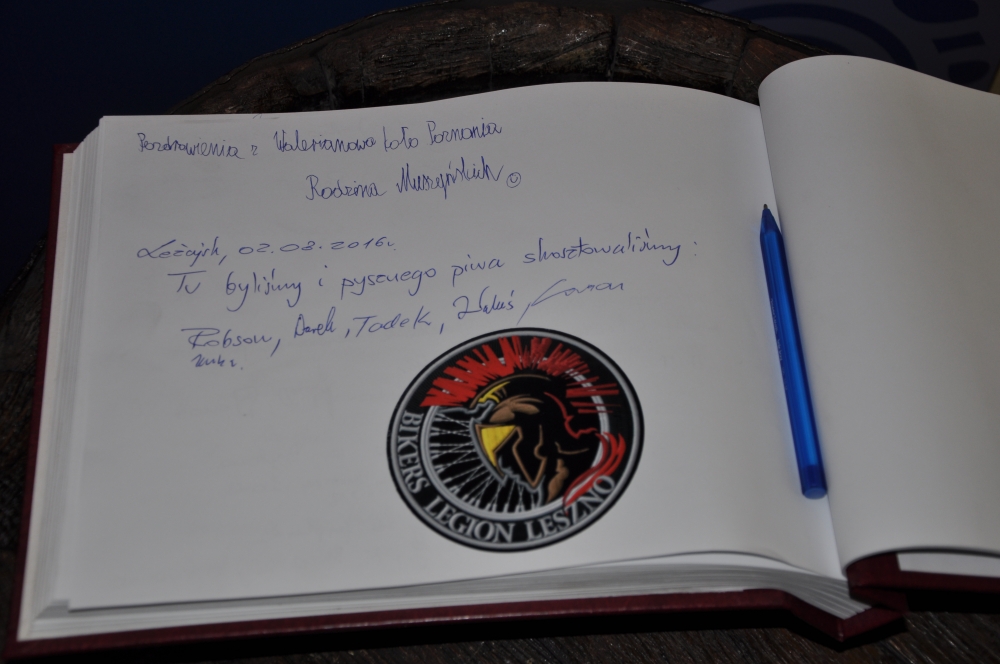 Pozdrowienia z Walerianowa koło Poznania
Rodzina Muszyńskich
Leżajsk, 02.08.2016r.
Tu byliśmy i pysznego piwa skosztowaliśmy:
Robson, Darek, Tadek,
BIKERS LEGION LESZNO